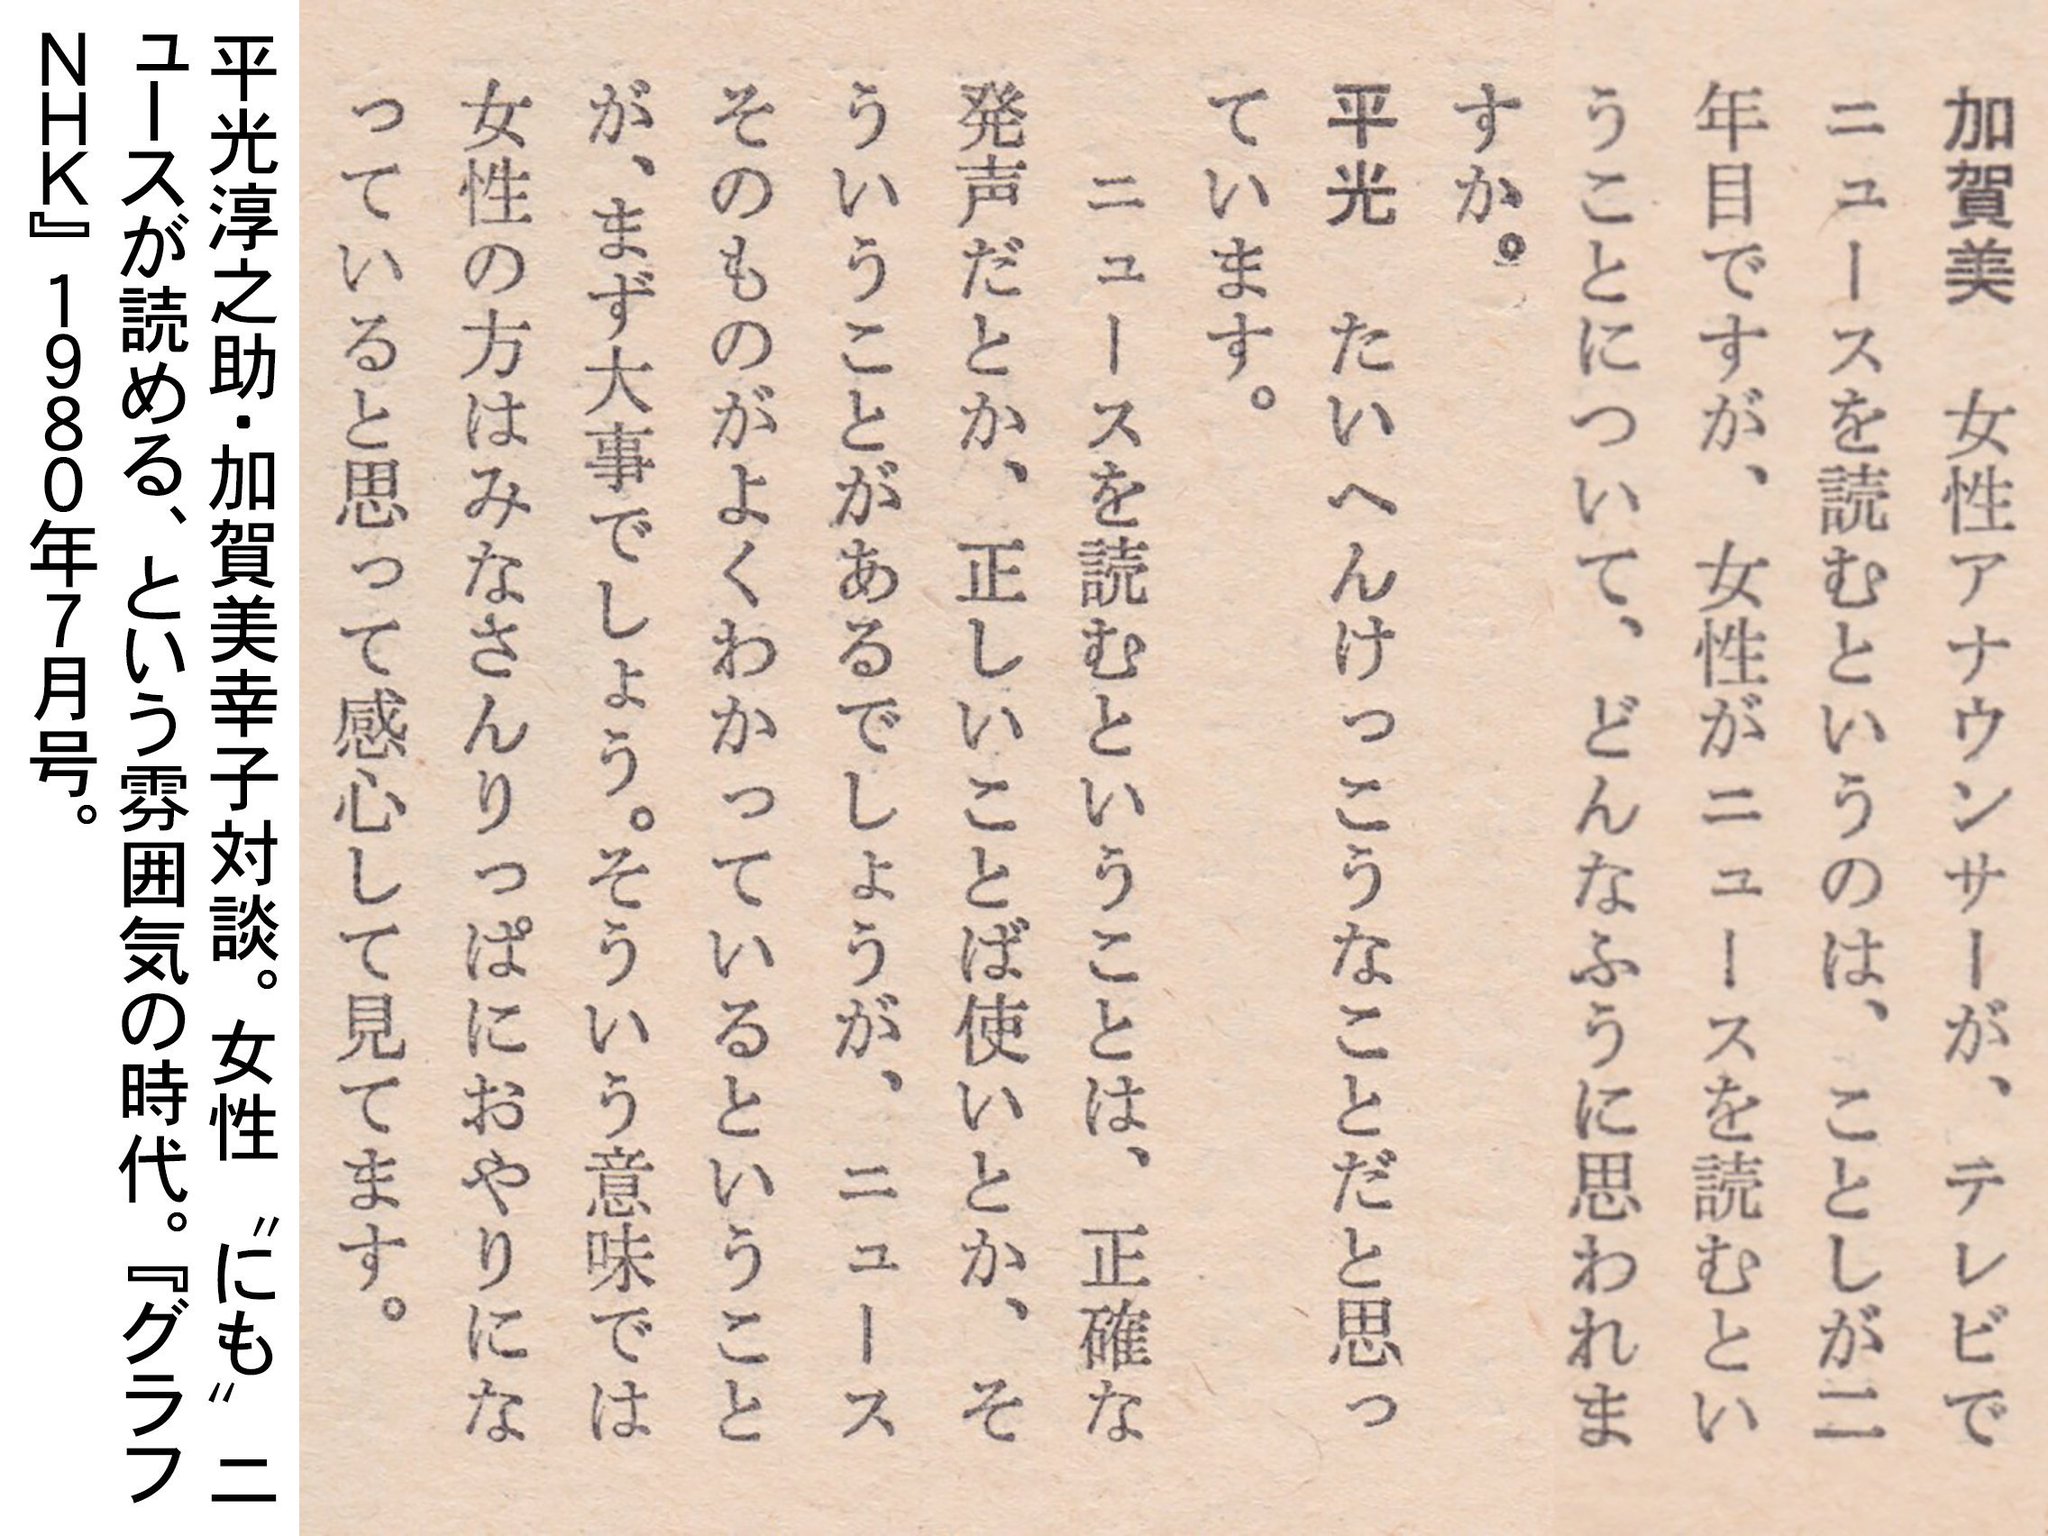 加賀美　女性アナウンサーが、テレビで
ニュースを読むというのは、ことしが二
年目ですが、女性がニュースを読むとい
うことについて、どんなふうに思われま
すか。
平光　たいへんけっこうなことだと思っ
ています。
　ニュースを読むということは、正確な
発声だとか、正しいことば使いとか、そ
ういうことがあるでしょうが、ニュース
そのものがよくわかっているということ
が、まず大事でしょう。そういう意味では
女性の方はみなさんりっぱにおやりにな
っていると思って感心して見てます。
平光淳之助・加賀美幸子対談。女性〝にも〟ニ
ュースが読める、という雰囲気の時代。『グラフ
ＮＨＫ』１９８０年７月号。